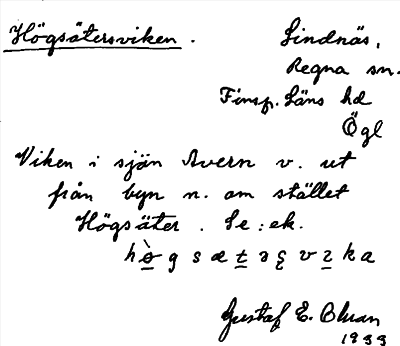 Högsätersviken. Lindnäs,
Regna sn.
Finsp. Läns hd
Ögl
Viken i sjön Avern v. ut
från byn n. om stället
Högsäter. Se: ek.
Gustaf E. Bluan
1933